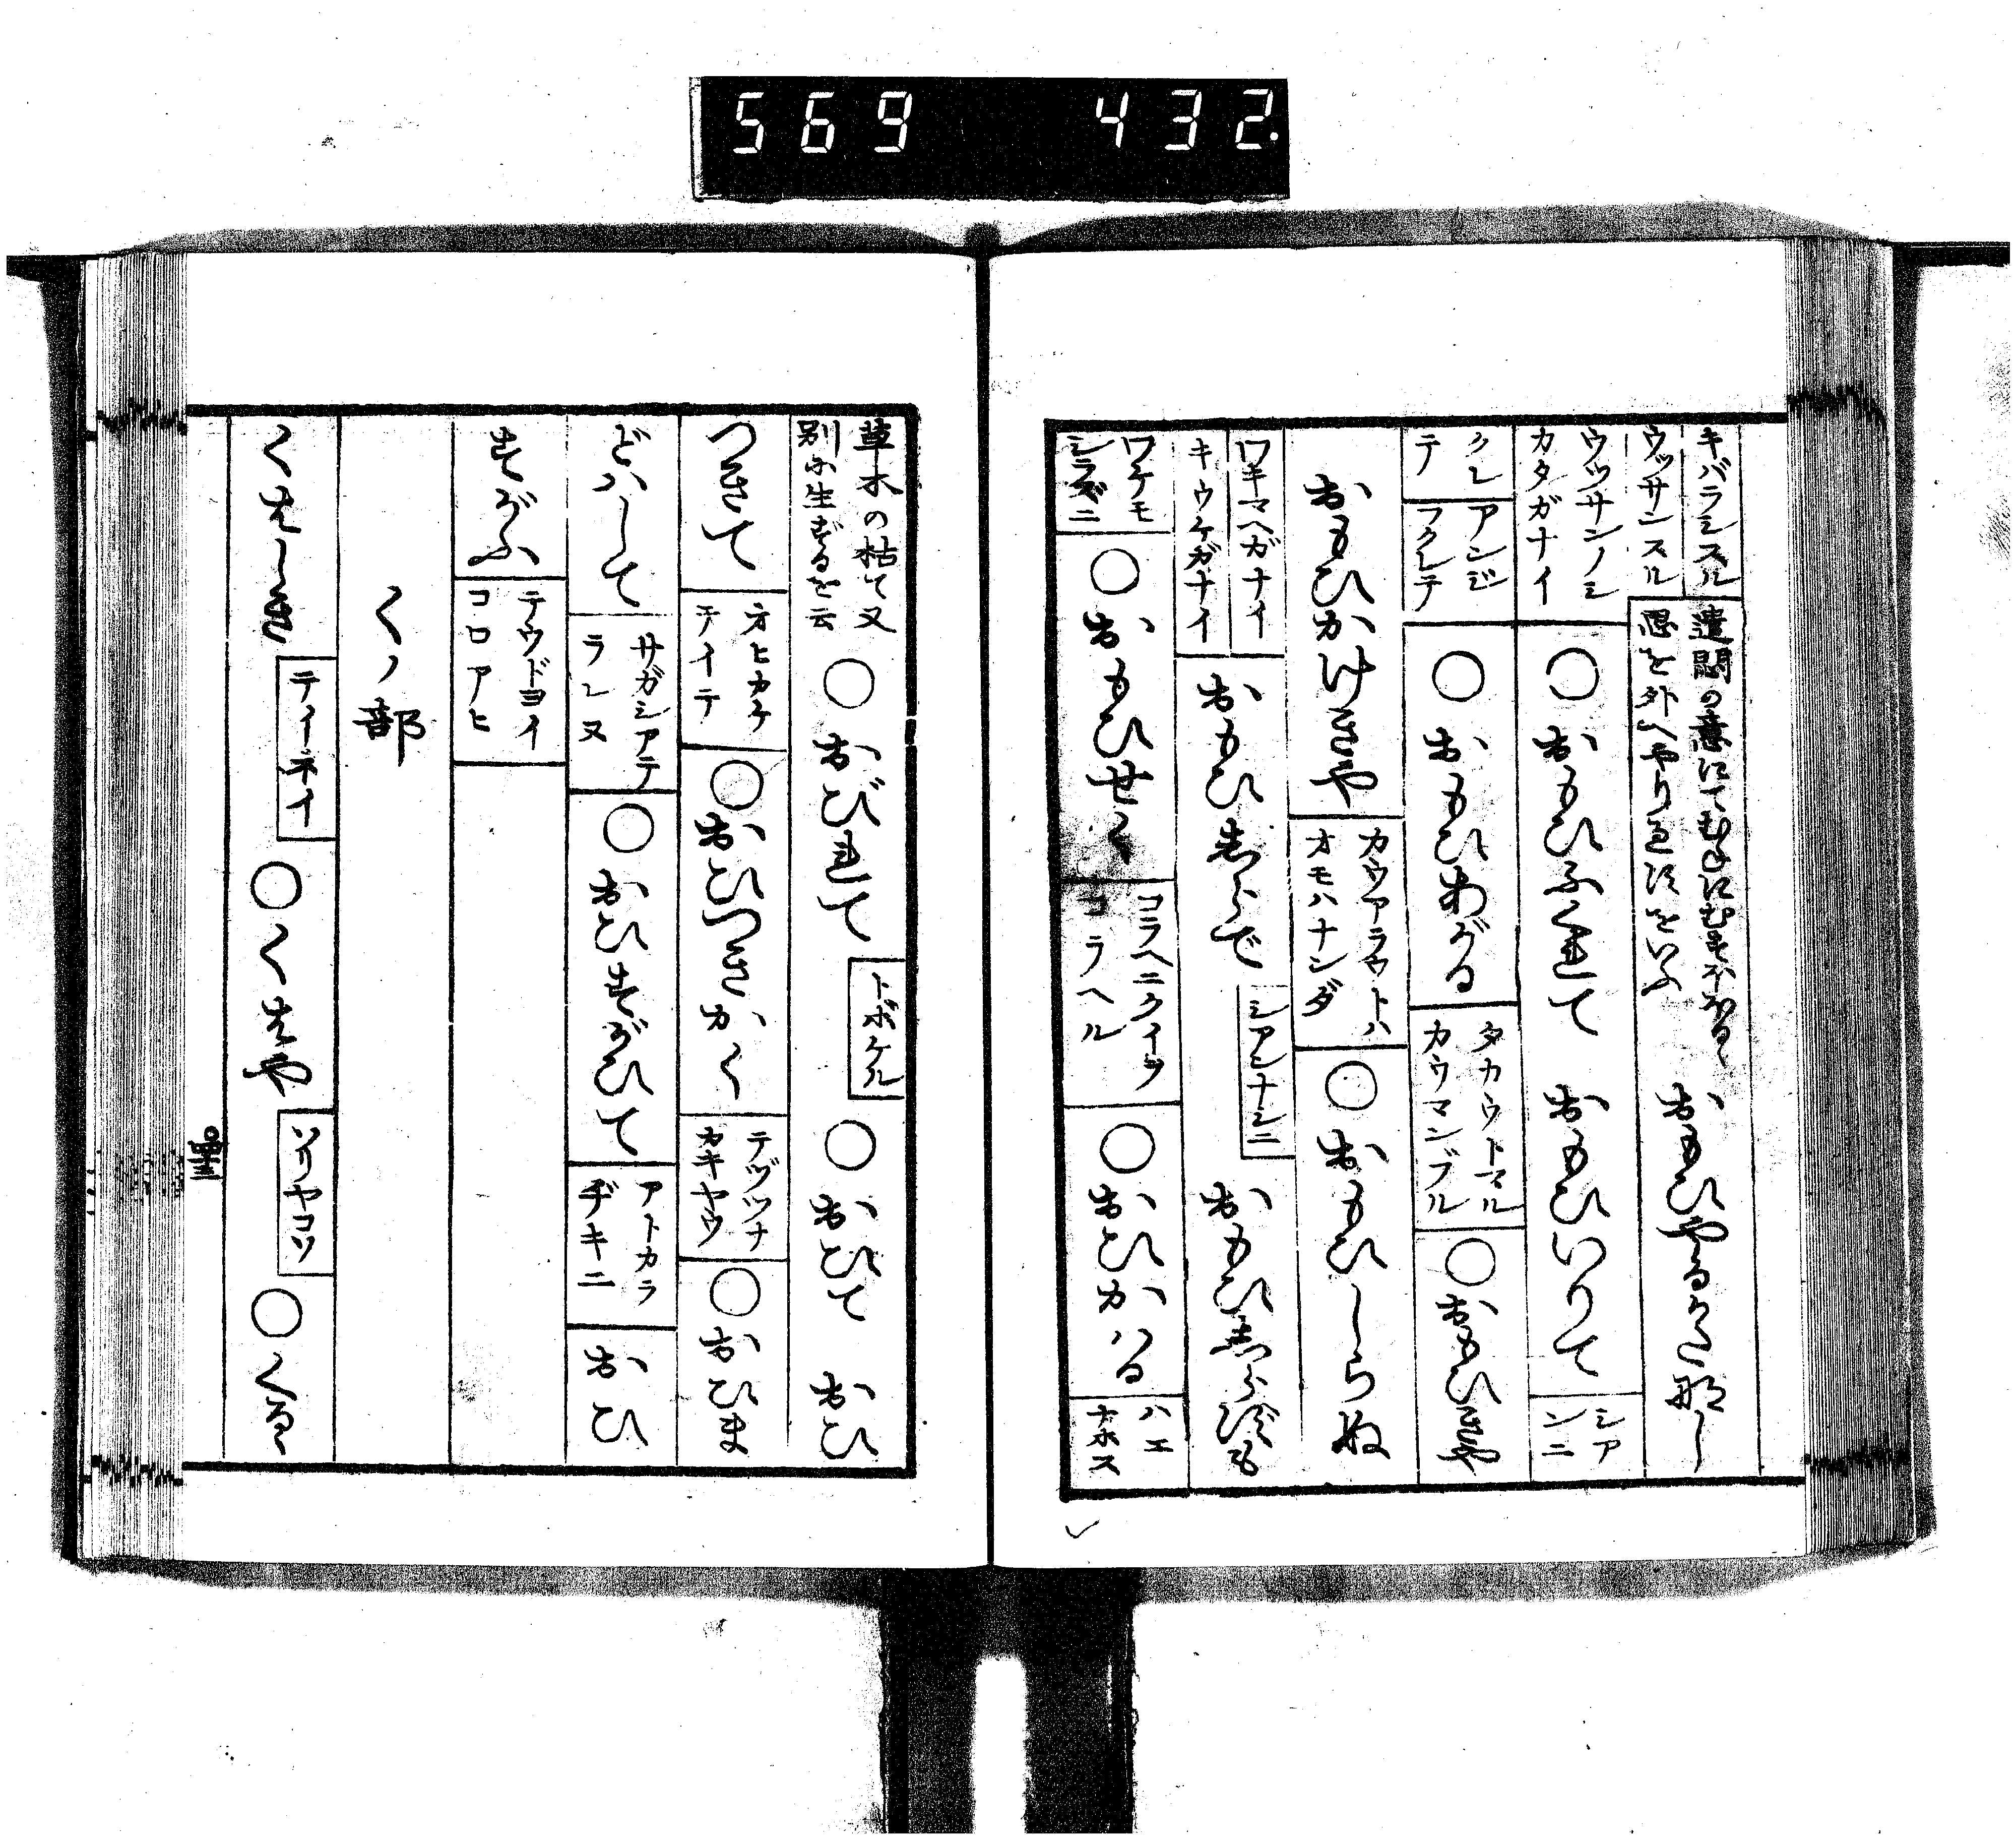 569 432.
キバラシスル
ウッサンスル
遣悶の意にてむねにむすぼゝる
思を外へやりるすをいふ
おもひやるかた那し
ウッサンノシ
カタガナイ
○おもひふくれて おもひいりて
シア
ンニ
クレ
テ
アンジ
フクレテ
○おもひあがる
タカウトマル
カウマンブル
○おもひきや
おもひかけきや
カウアラウトハ
オモハナンダ
○おもひしらぬ
ワキマヘガナイ
キウケガナイ
おもひあらで
シアンナシニ
おもひあらずも
ワケモ
シラズニ
○おもひせく
コラヘニクイヲ
コラヘル
○おひかハる
ハエ
ナホス
草木の枯て又
別に生ずるを云
○おびれて
トボケル
○おひて おひ
つきて
オヒカケ
テイテ
○おひつきかく
テヅツナ
カキヤウ
○おひま
どハして
サガシアテ
ラレヌ
○おひすがひて
アトカラ
ヂキニ
おひ
すがふ
テウドヨイ
コロアヒ
くノ部
くはしき
テイネイ
○くはや
ソリヤコソ
○くる